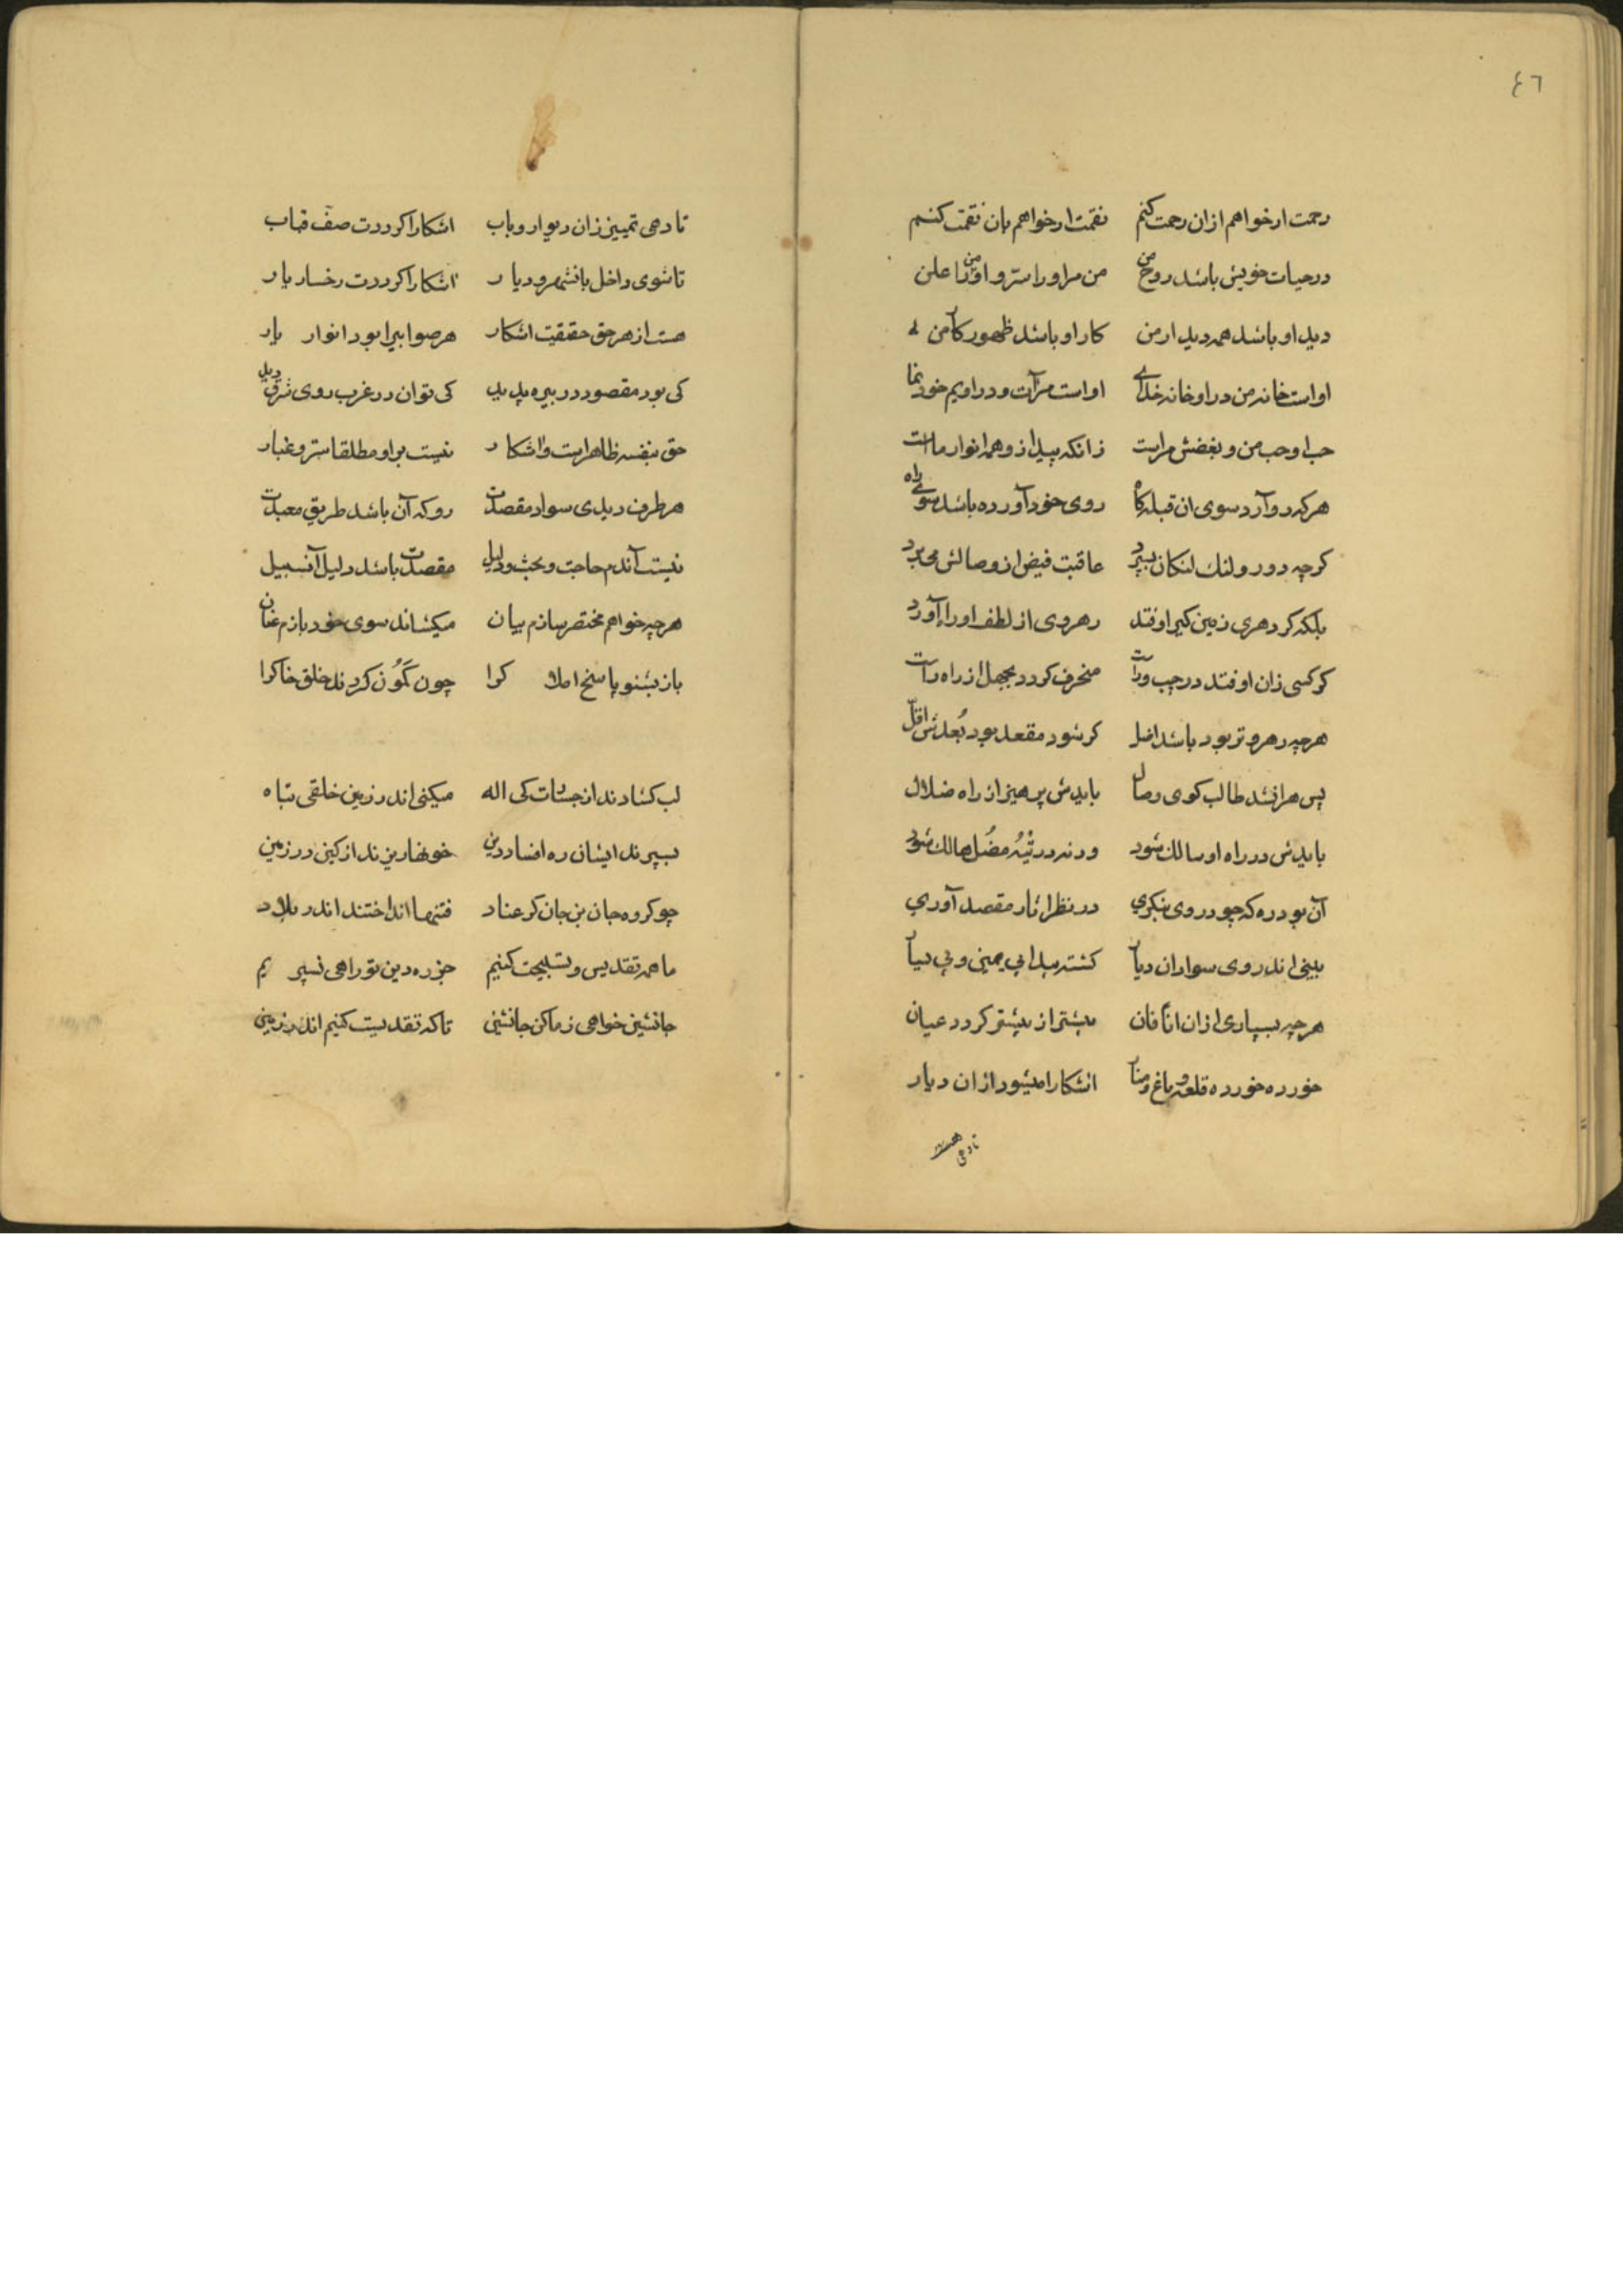 ٤٦
رحمت ار خواهم ازان رحمت کنم نقمت ار خواهم بان نقمت کنم
در حیات خویش باشد روح من من مر اورا سرّ و او من را علن
دید او باشد همه دیدار من کار او باشد ظهور کار من
او است خانه من در او خانه خدای او است مرآت و در او یم خود نما
حب او حب من و بغضش مراست زانکه پیدا زو همه انوار ماست
هر که رو آرد سوی ان قبله کاه روی خود آورده باشد سوی راه
کرچه دور و لنک لنکان بسپرد عاقبت فیض از وصالش می برد
بلکه کر دهری زمین کیر اوفتد رهروی از لطف او را آورد
کر کسی زان اوفتد در چپ و راست منحرف کردد بجهل از راه راست
هر چه رهرو تر بود باشد اضل کر شود مقعد بود بُعدش اقلّ
پس هر انشد طالب کوی وصال بایدش پرهیز از راه ضلال
بایدش در راه او سالک شود ورنه در تیهُ مضُل هالک شود
آن بود ره که چو در وی بنکری در نظر اثار مقصد آوری
بینی اندر وی سواد ان دیار کشته پیدا بی یمین و بی یسار
هر چه بسپاری ازان انا فان بیشتر از بیشتر کردد عیان
خورده خورده قلعه و باغ و منار اشکارا میشود ازان دیار
تا دهی
تا دهی تمییز زان دیوار و باب اشکارا کرددت صفّ قباب
تا شوی داخل بانشهر و دیار اشکارا کرددت رخسار یار
هست از هر حق حقیقت اشکار هر صوابیرا بود انوار یار
کی بود مقصود در بیره پدید کی توان در غرب روی شرق دید
حق بنفسه ظاهر است و اشکار نیست بر او مطلقا ستر و غبار
هر طرف دیدی سواد مقصدت رو که آن باشد طریق معبدت
نیست آندم حاجت و بحث و دلیل مقصدت باشد دلیل آنسبیل
هر چه خواهم مختصر سازم بیان میکشاند سوی خود بازم عنان
باز بشنو پاسخ املاک را چون نکُون کردند خلق خاک را
لب کشادند از جسارت کی اله میکنی اندر زمین خلقی تباه
بسپرند ایشان ره افساد دین خونها ریزند از کین در زمین
چو کروه جان بن جان کر عناد فتنها انداختند اندر بلاد
ما همه تقدیس و تسبیحت کنیم جز ره دین تو راهی نسپریم
جانشین خواهی ز ما کن جانشین تا که تقدیست کنیم اندر زمین